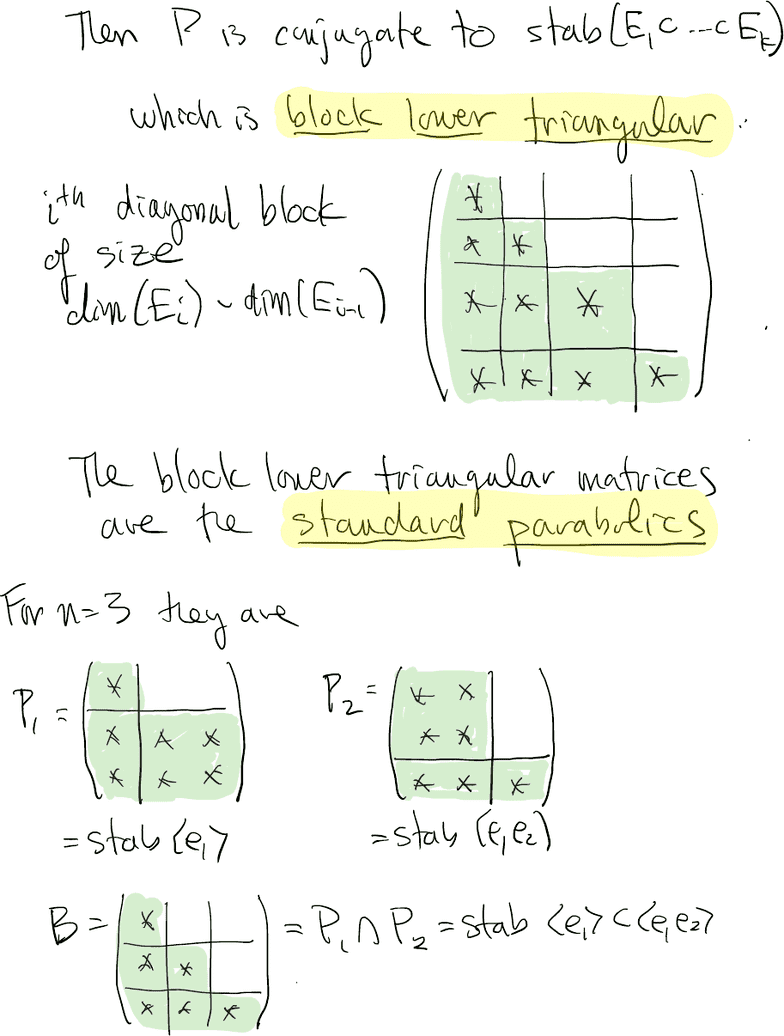 Then P is conjugate to stab(E₁ ⊂ ... ⊂ Eₖ)
which is block lower triangular.
iᵗʰ diagonal block
of size
dim(Eᵢ) - dim(Eᵢ₋₁)
*
* *
* * *
* * * *
The block lower triangular matrices
are the standard parabolics
For n=3 they are
P₁ =
*
* * *
* * *
= stab ⟨e₁⟩
P₂ =
* *
* *
* * *
= stab ⟨e₁e₂⟩
B =
*
* *
* * *
= P₁ ∩ P₂ = stab ⟨e₁⟩ ⊂ ⟨e₁e₂⟩